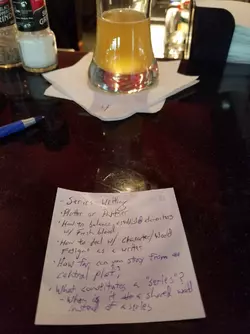 - Series Writing
- Plotter or Pantser
- How to balance established characters
w/ fresh blood
- How to deal w/ character/world
fatigue as a writer
- How far can you stray from
central plot?
- What constitutes a "series"?
- When is it a shared world
instead of a series